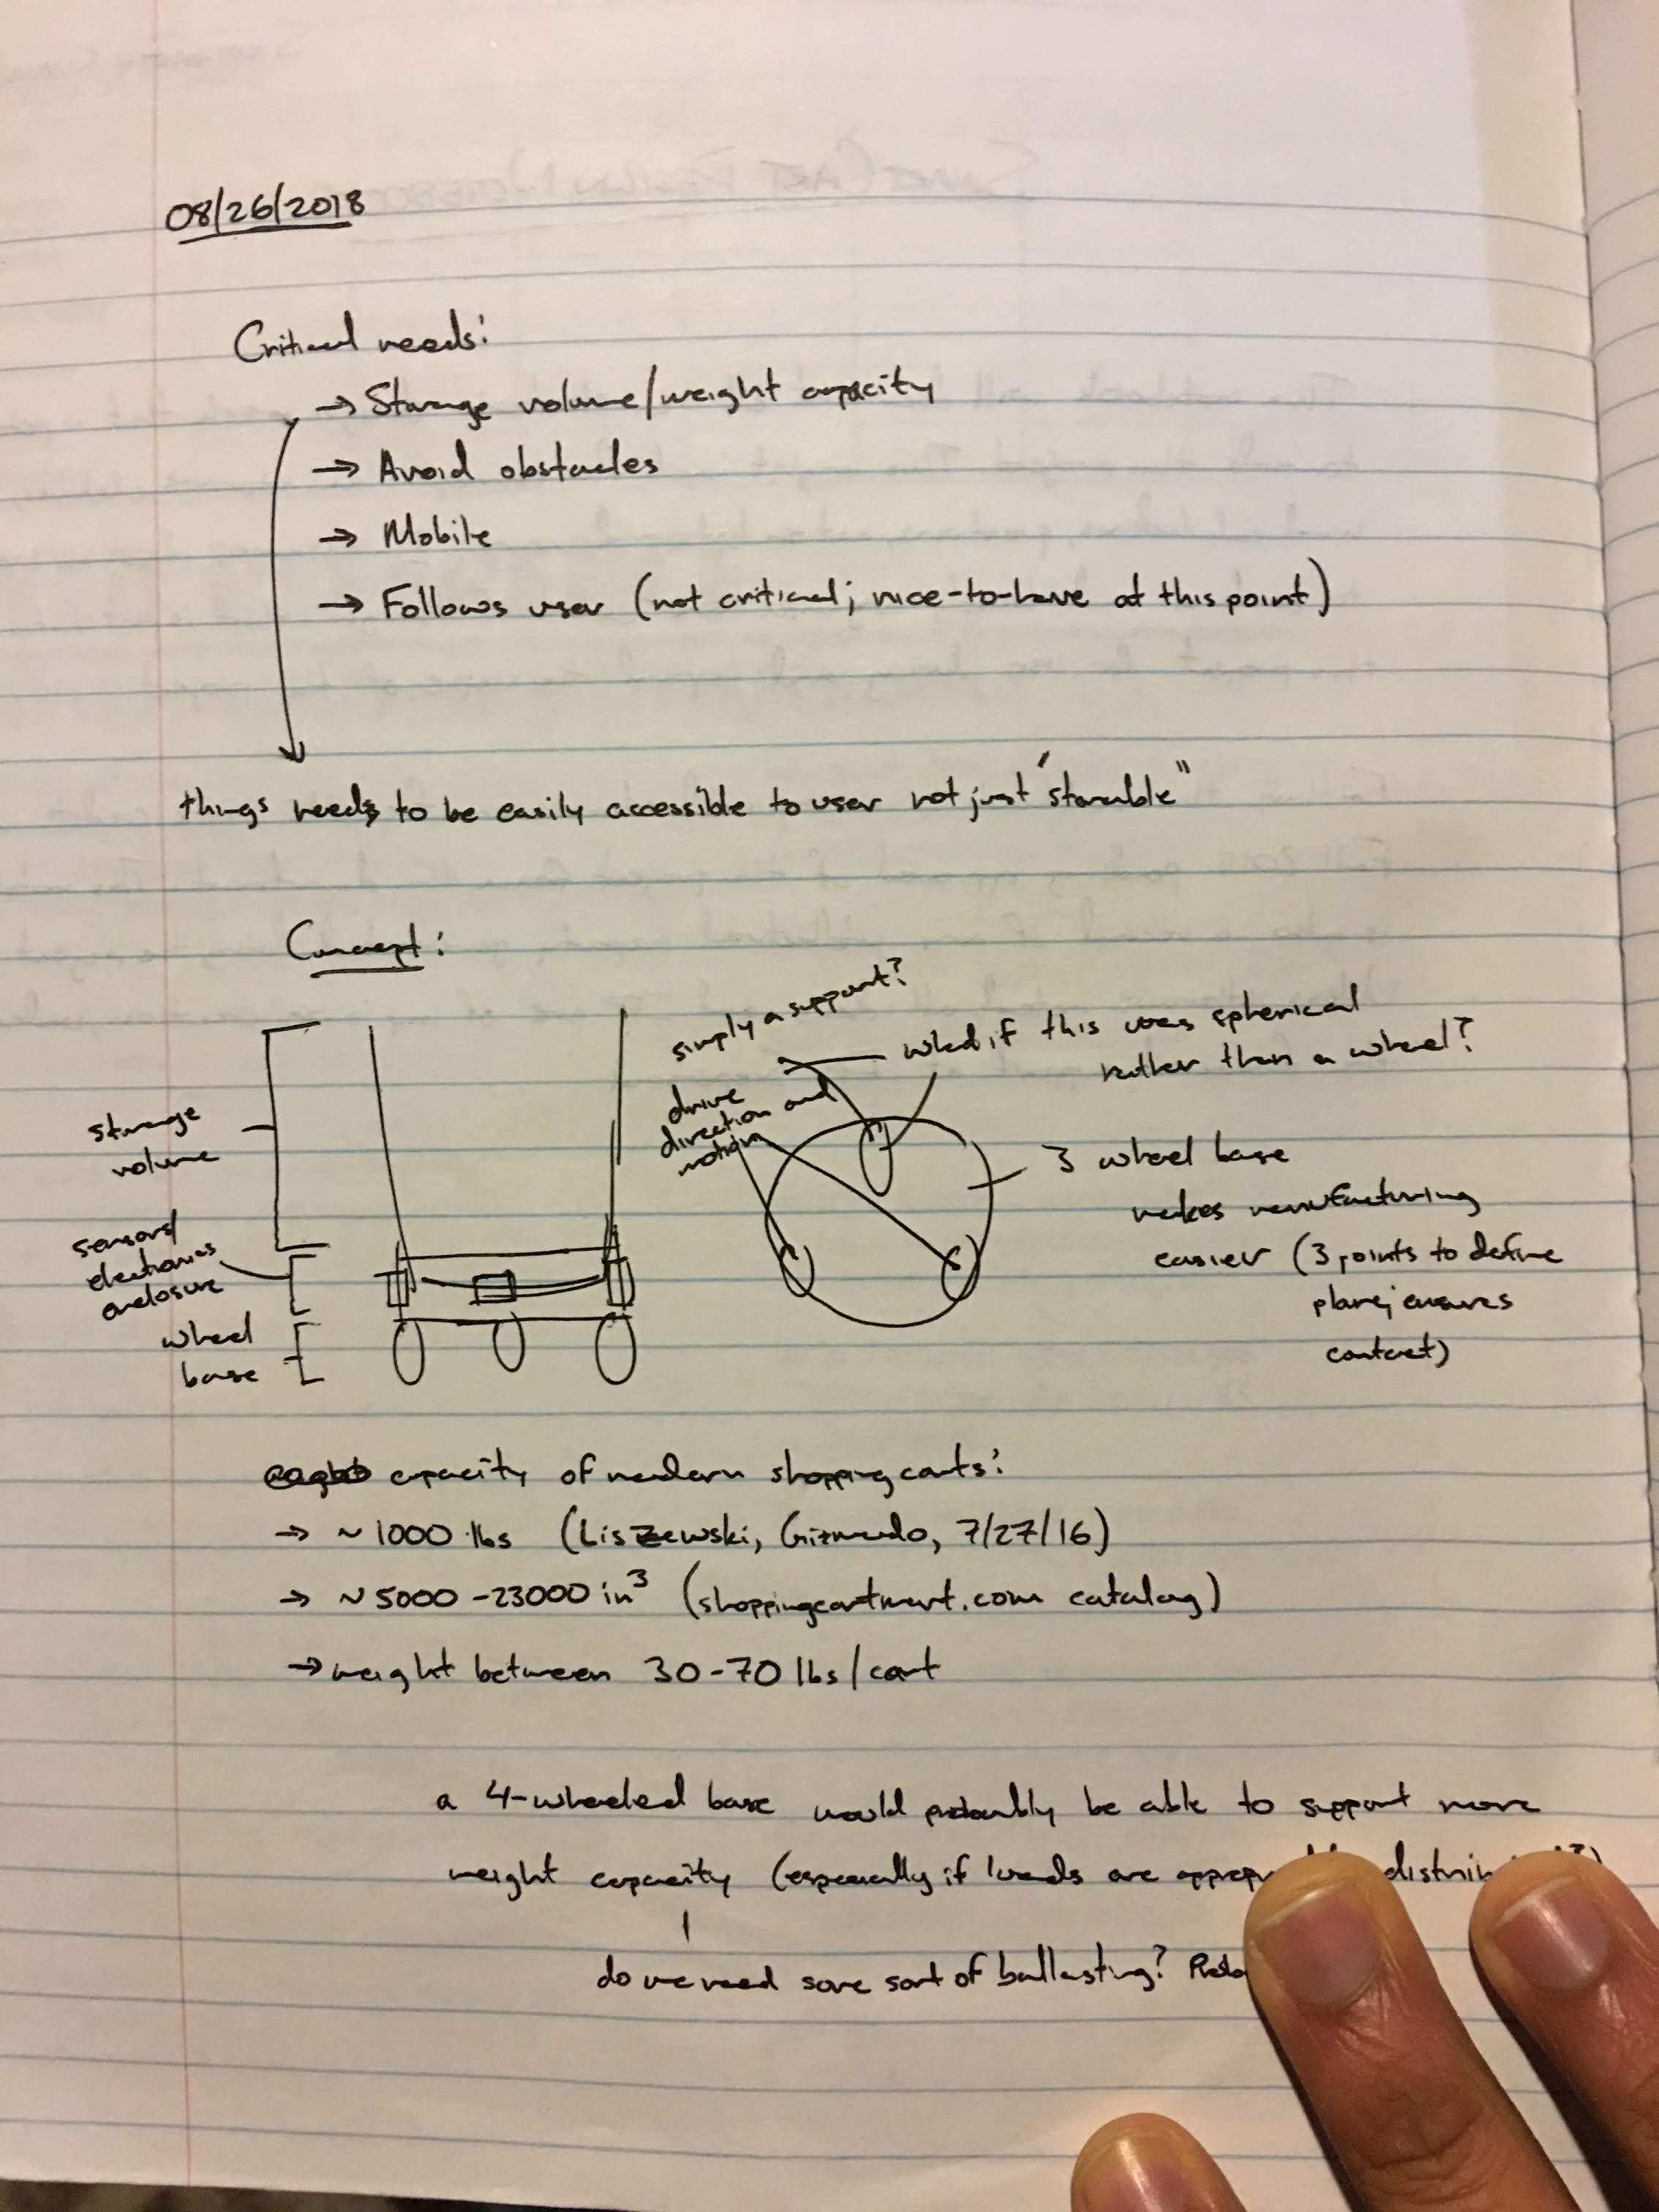 08/26/2018
Critical needs:
→ Storage volume/weight capacity
→ Avoid obstacles
→ Mobile
→ Follows user (not critical; nice-to-have at this point)
things needs to be easily accessible to user not just "storable"
Concept:
storage
volume
sensors/
electronics
enclosure
wheel
base
simply a support?
drive
direction and
motion
what if this was spherical
rather than a wheel?
3 wheel base
makes manufacturing
easier (3 points to define
plane; ensures
contact)
capacity of modern shopping carts:
→ ~1000 lbs (Liszewski, Gizmodo, 7/27/16)
→ ~5000-23000 in³ (shoppingcartmart.com catalog)
→ weight between 30-70 lbs/cart
a 4-wheeled base would probably be able to support more
weight capacity (especially if loads are
do we need some sort of ballasting?